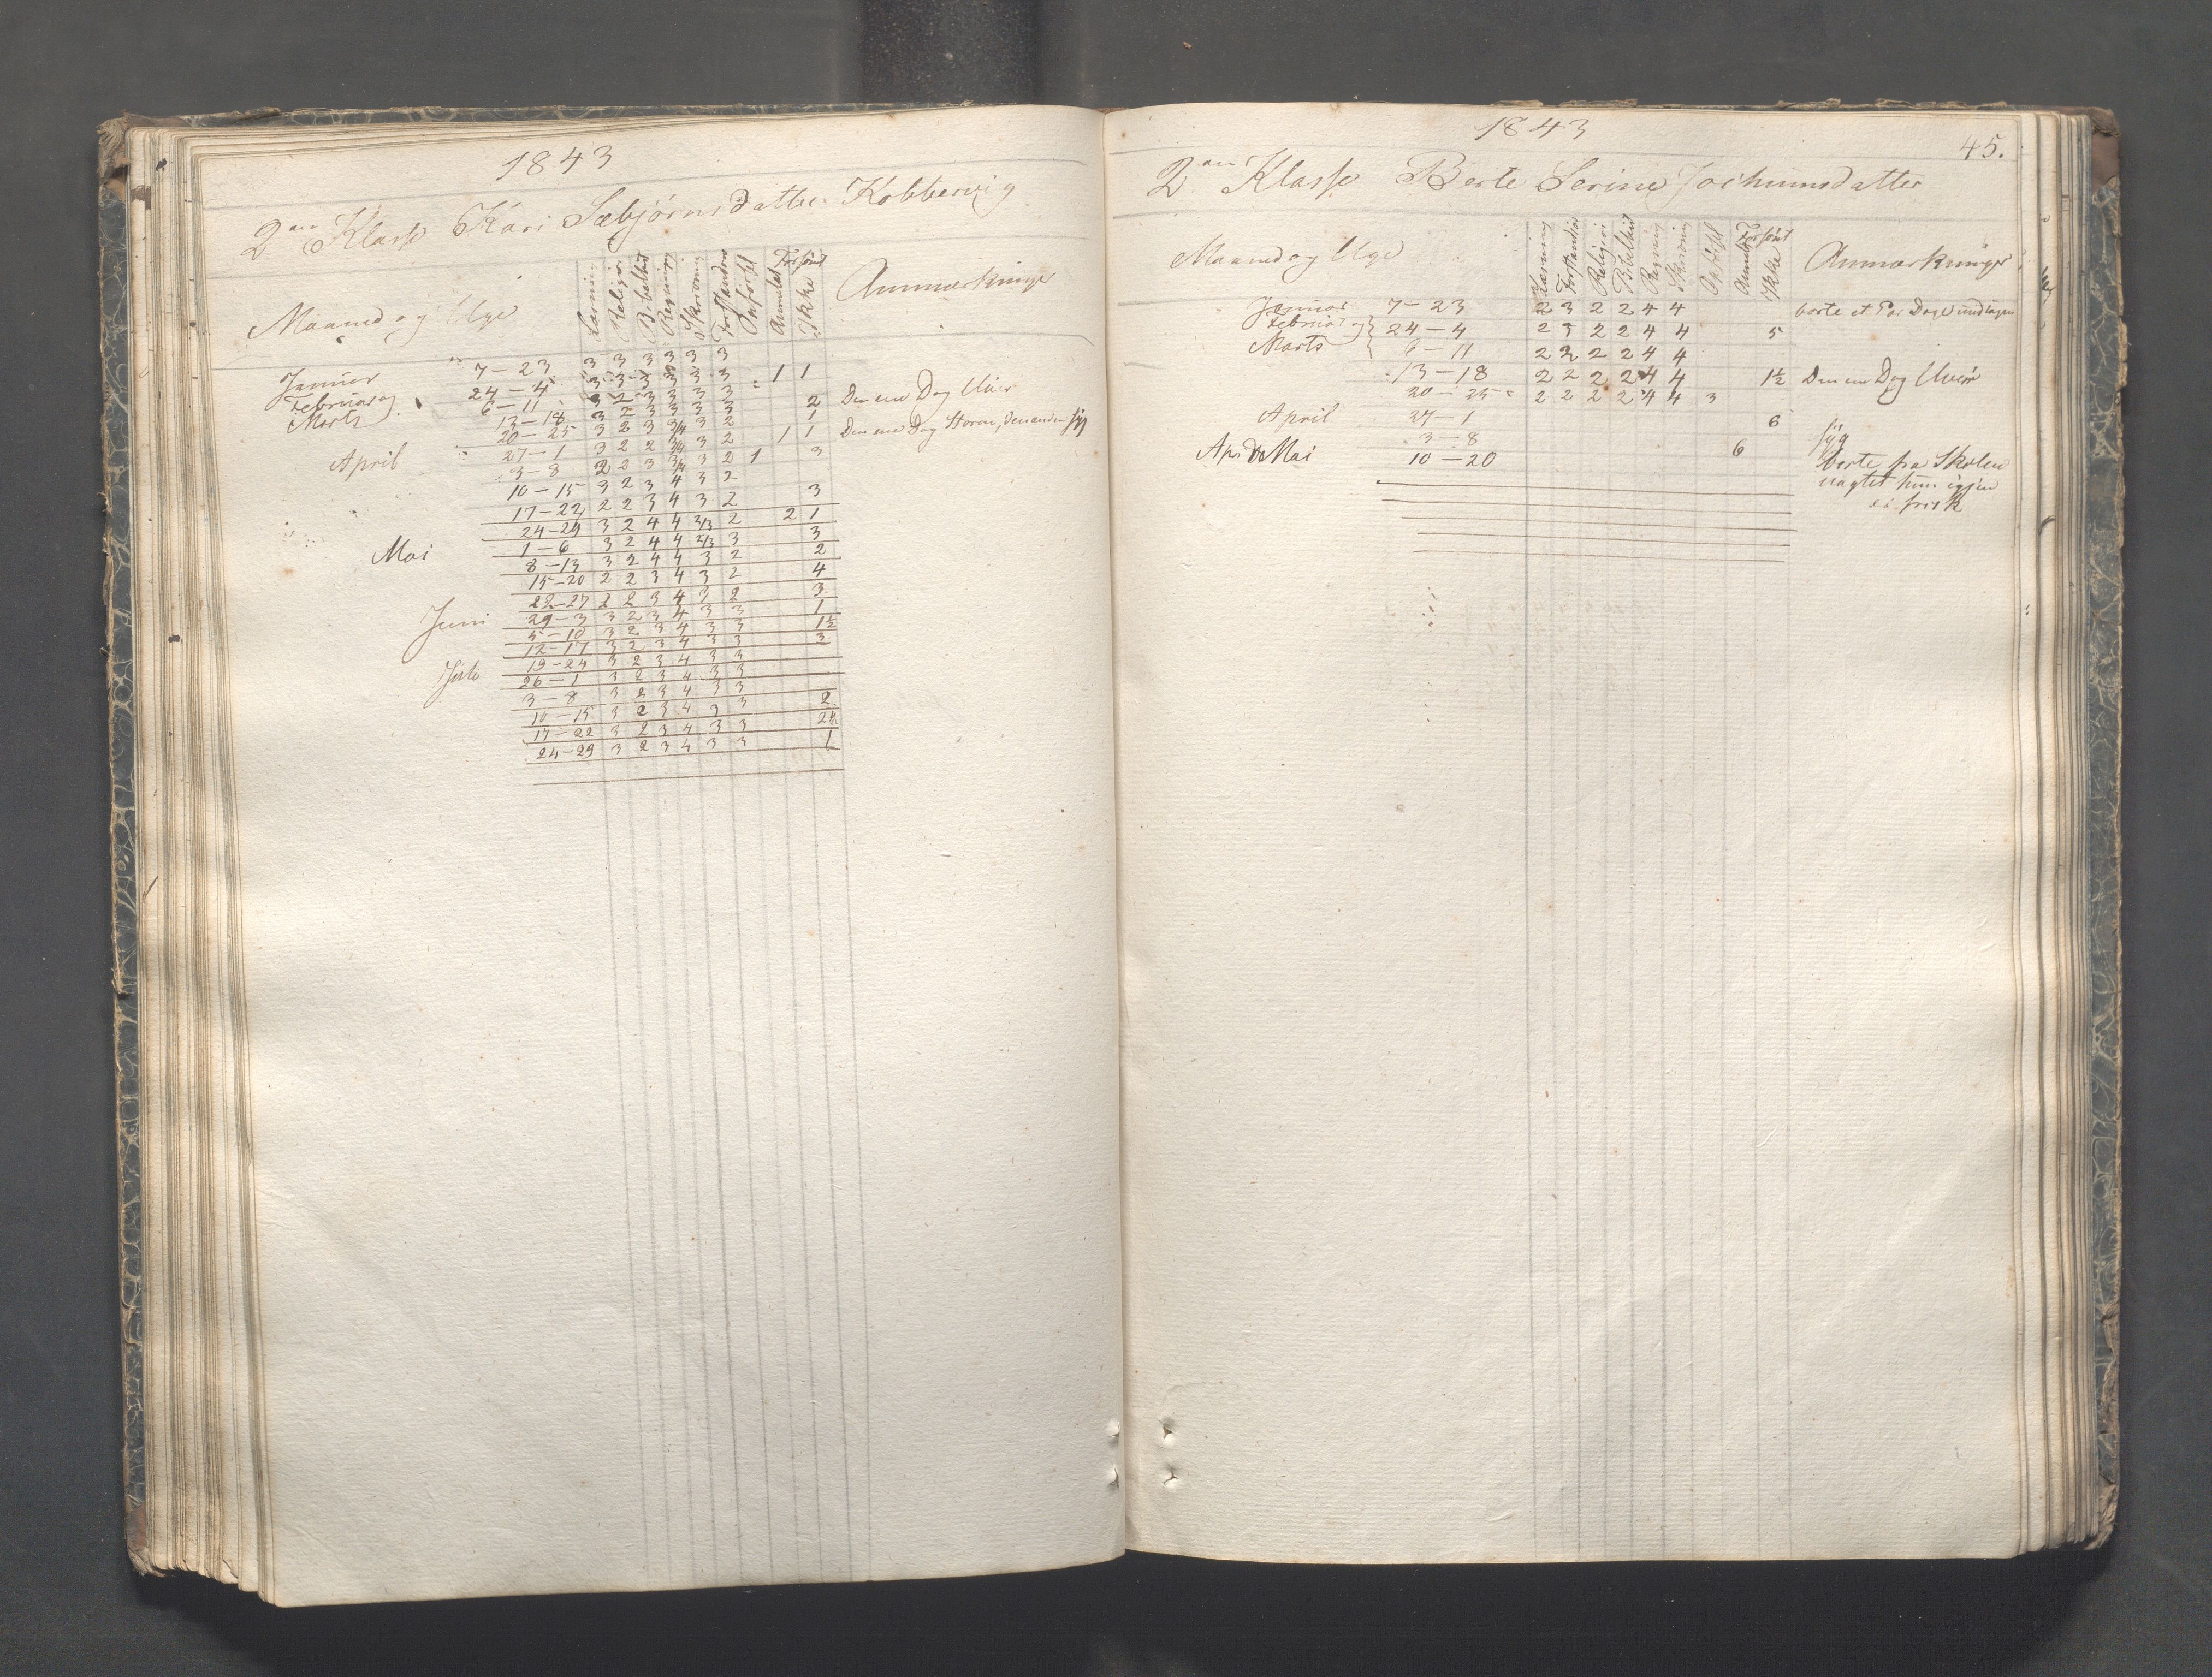 1843
2den Klasse Kari Sæbjørnsdatter Kobbervig
Maaned og Uge Læsning Religion Bibelhist Regning Skrivning Forstanden Forsømt Anmeldt Ikke Anmærkninger
Januar 7-23 3 3 3 3 3 3
Februar og 24-4 3 3 3 3 3 3 1 1
Marts 6-11 3 2 3 3 3 3
13-18 3 2 3 3 3 3 2 Den ene Dag Uveir
20-25 3 2 3 3/4 3 2 1
April 27-1 3 2 2 3/4 3 2 1 1 Den ene Dag Storm, den anden syg
3-8 2 2 3 3/4 3 2 1 3
10-15 3 2 3 4 3 2
17-22 2 2 3 4 3 2 3
24-29 3 2 4 4 2/3 2 2 1
Mai 1-6 3 2 4 4 2/3 3 3
8-13 3 2 4 4 3 2 2
15-20 2 2 3 4 3 2 4
22-27 2 2 3 4 3 2 3
Juni 29-3 3 2 3 4 3 3 1
5-10 3 2 3 4 3 3 1½
12-17 3 2 3 4 3 3 3
19-24 3 2 3 4 3 3
Juli 26-1 3 2 3 4 3 3
3-8 3 2 3 4 3 3
10-15 3 2 3 4 3 3 2
17-22 3 2 3 4 3 3 2½
24-29 3 2 3 4 3 3 1
1843
45.
2den Klasse Berte Serine Jochumsdatter
Maaned og Uge Læsning Forstanden Religion Bibelhist Regning Skrivning Opførsel Forsømt Anmeldt Ikke Anmærkninger
Januar 7-23 2 3 2 2 4 4 borte et Par Dage undtagen
Februar og 24-4 2 3 2 2 4 4 5
Marts 6-11 2 2 2 2 4 4
13-18 2 2 2 2 4 4 1½ Den ene Dag Uveir
20-25 2 2 2 2 4 4 3
April 27-1 6
3-8 6 syg
Mai 10-20 borte fra Skolen
uagtet hun igjen
er frisk